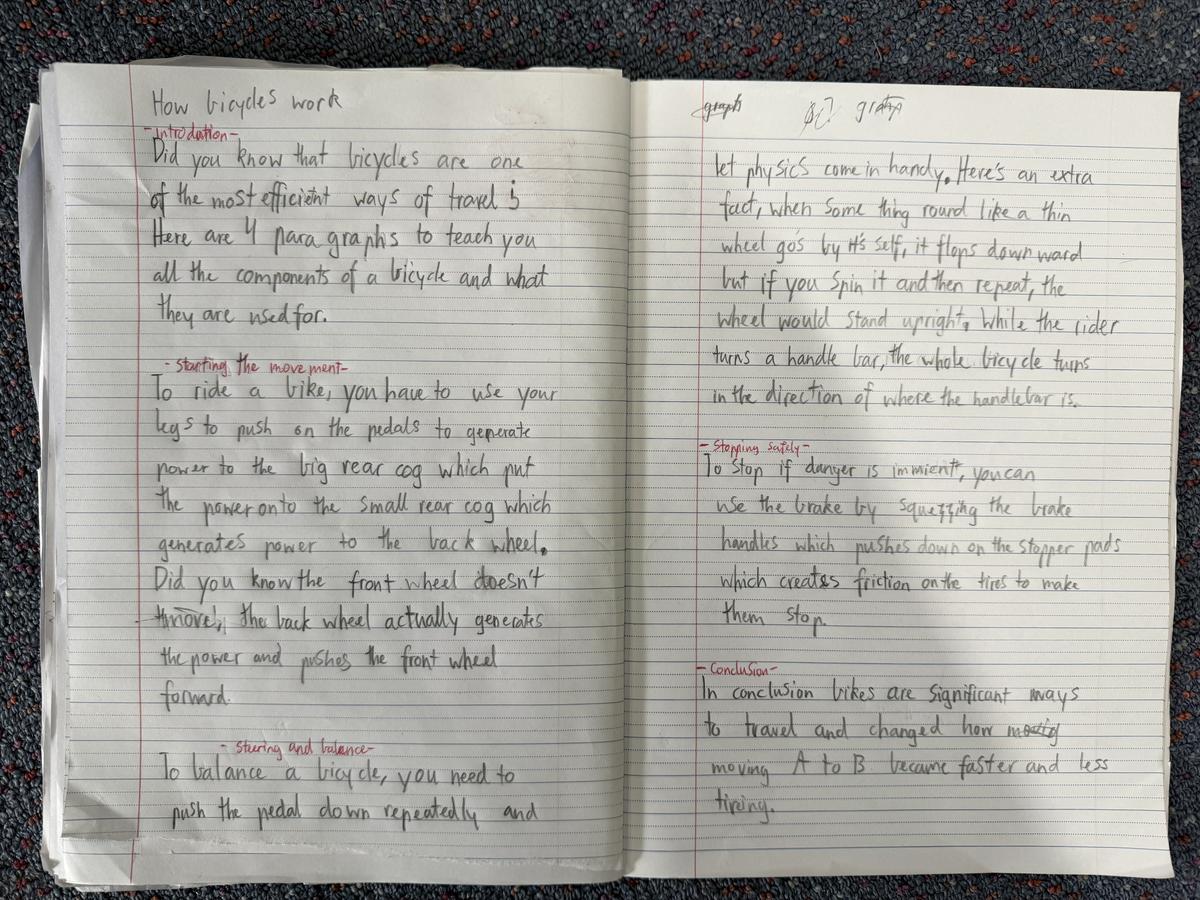 How bicycles work
-Introdution-
Did you know that bicycles are one
of the most efficient ways of travel
Here are 4 para graphs to teach you
all the components of a bicycle and what
they are used for.
- Starting the move ment-
To ride a bike, you have to use your
legs to push on the pedals to generate
power to the big rear cog which put
the power onto the small rear cog which
generates power to the back wheel.
Did you know the front wheel doesn't
move, the back wheel actually generates
the power and pushes the front wheel
forward.
- Steering and balance-
To balance a bicycle, you need to
push the pedal down repeatedly and
graph graph
let physics come in handy. Here's an extra
fact, when some thing round like a thin
wheel go's by it's self, it flops down ward
but if you spin it and then repeat, the
wheel would stand upright. While the rider
turns a handle bar, the whole bicycle turns
in the direction of where the handlebar is.
- Stopping safely-
To stop if danger is immient, you can
use the brake by squezzing the brake
handles which pushes down on the stopper pads
which creates friction on the tires to make
them stop.
- Conclusion-
In conclusion bikes are significant ways
to travel and changed how
moving A to B became faster and less
tireing.